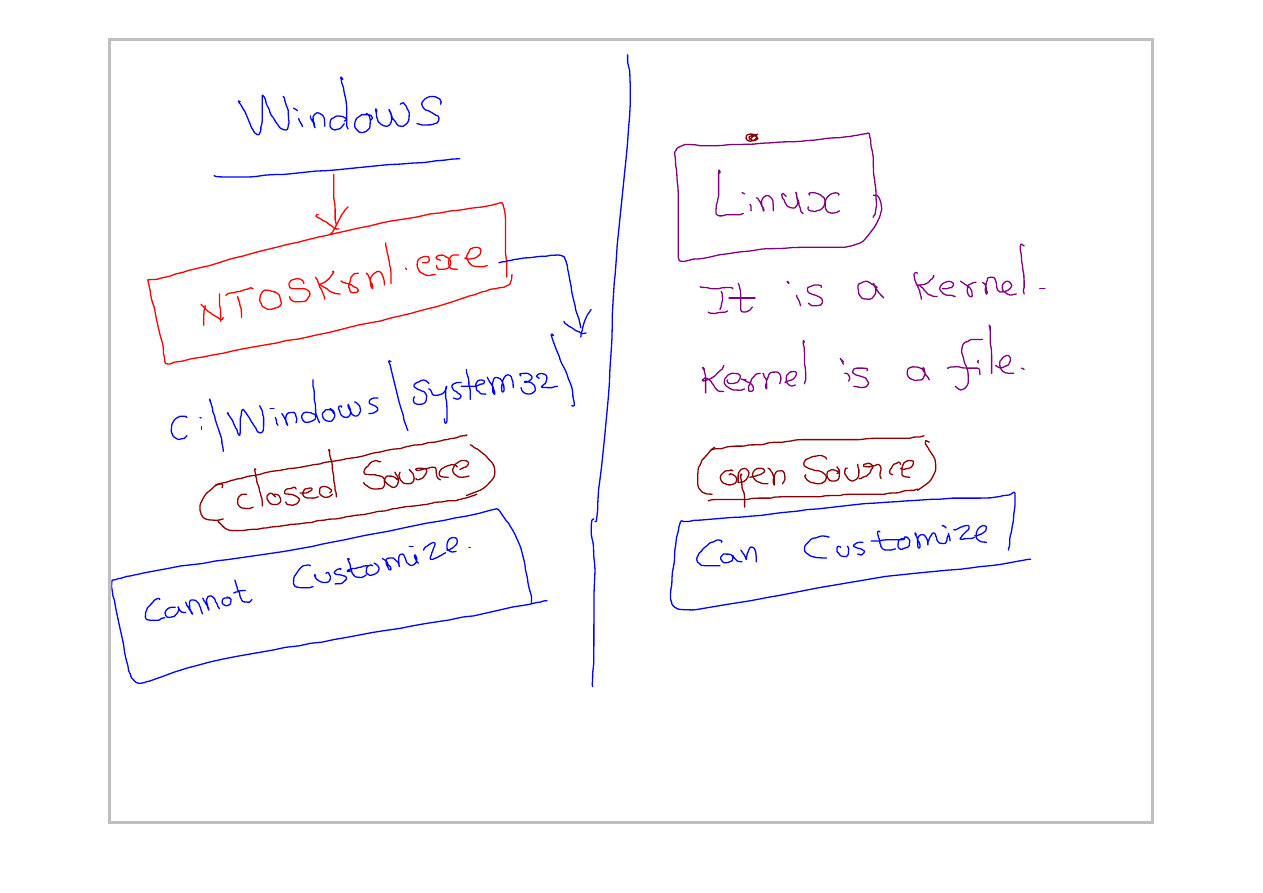 Windows
NTOSKrnl.exe
C:\Windows\System32\
closed Source
Cannot Customize.
Linux
It is a Kernel.
Kernel is a file.
open Source
Can Customize